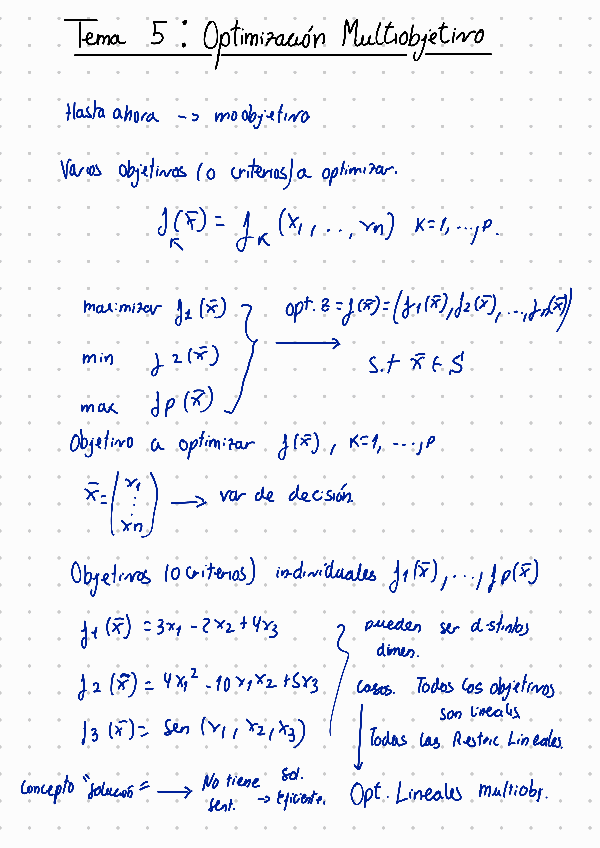 Tema 5: Optimización Multiobjetivo
Hasta ahora -> moobjetivo
Varios objetivos (o criterios) a optimizar.
f_K(x̄) = f_K (x1, .., xn) K=1, ..., p.
maximizar f1(x̄)
min f2(x̄)
max fp(x̄)
opt. z = f(x̄) = (f1(x̄), f2(x̄), ..., fp(x̄))
s.t x̄ ∈ S
Objetivo a optimizar f(x̄), K=1, ..., p
x̄ = (x1 ⋮ xn) → var de decisión
Objetivos (o criterios) individuales f1(x̄), ..., fp(x̄)
f1(x̄) = 3x1 - 2x2 + 4x3
f2(x̄) = 4x1² - 10x1x2 + 5x3
f3(x̄) = sen (x1, x2, x3)
pueden ser distintos
dimen.
casos. Todos los objetivos
son lineales
Todas las Restric Lineales.
Concepto "solución" → No tiene sent. → sol. Eficiente.
Opt. Lineales multiobj.